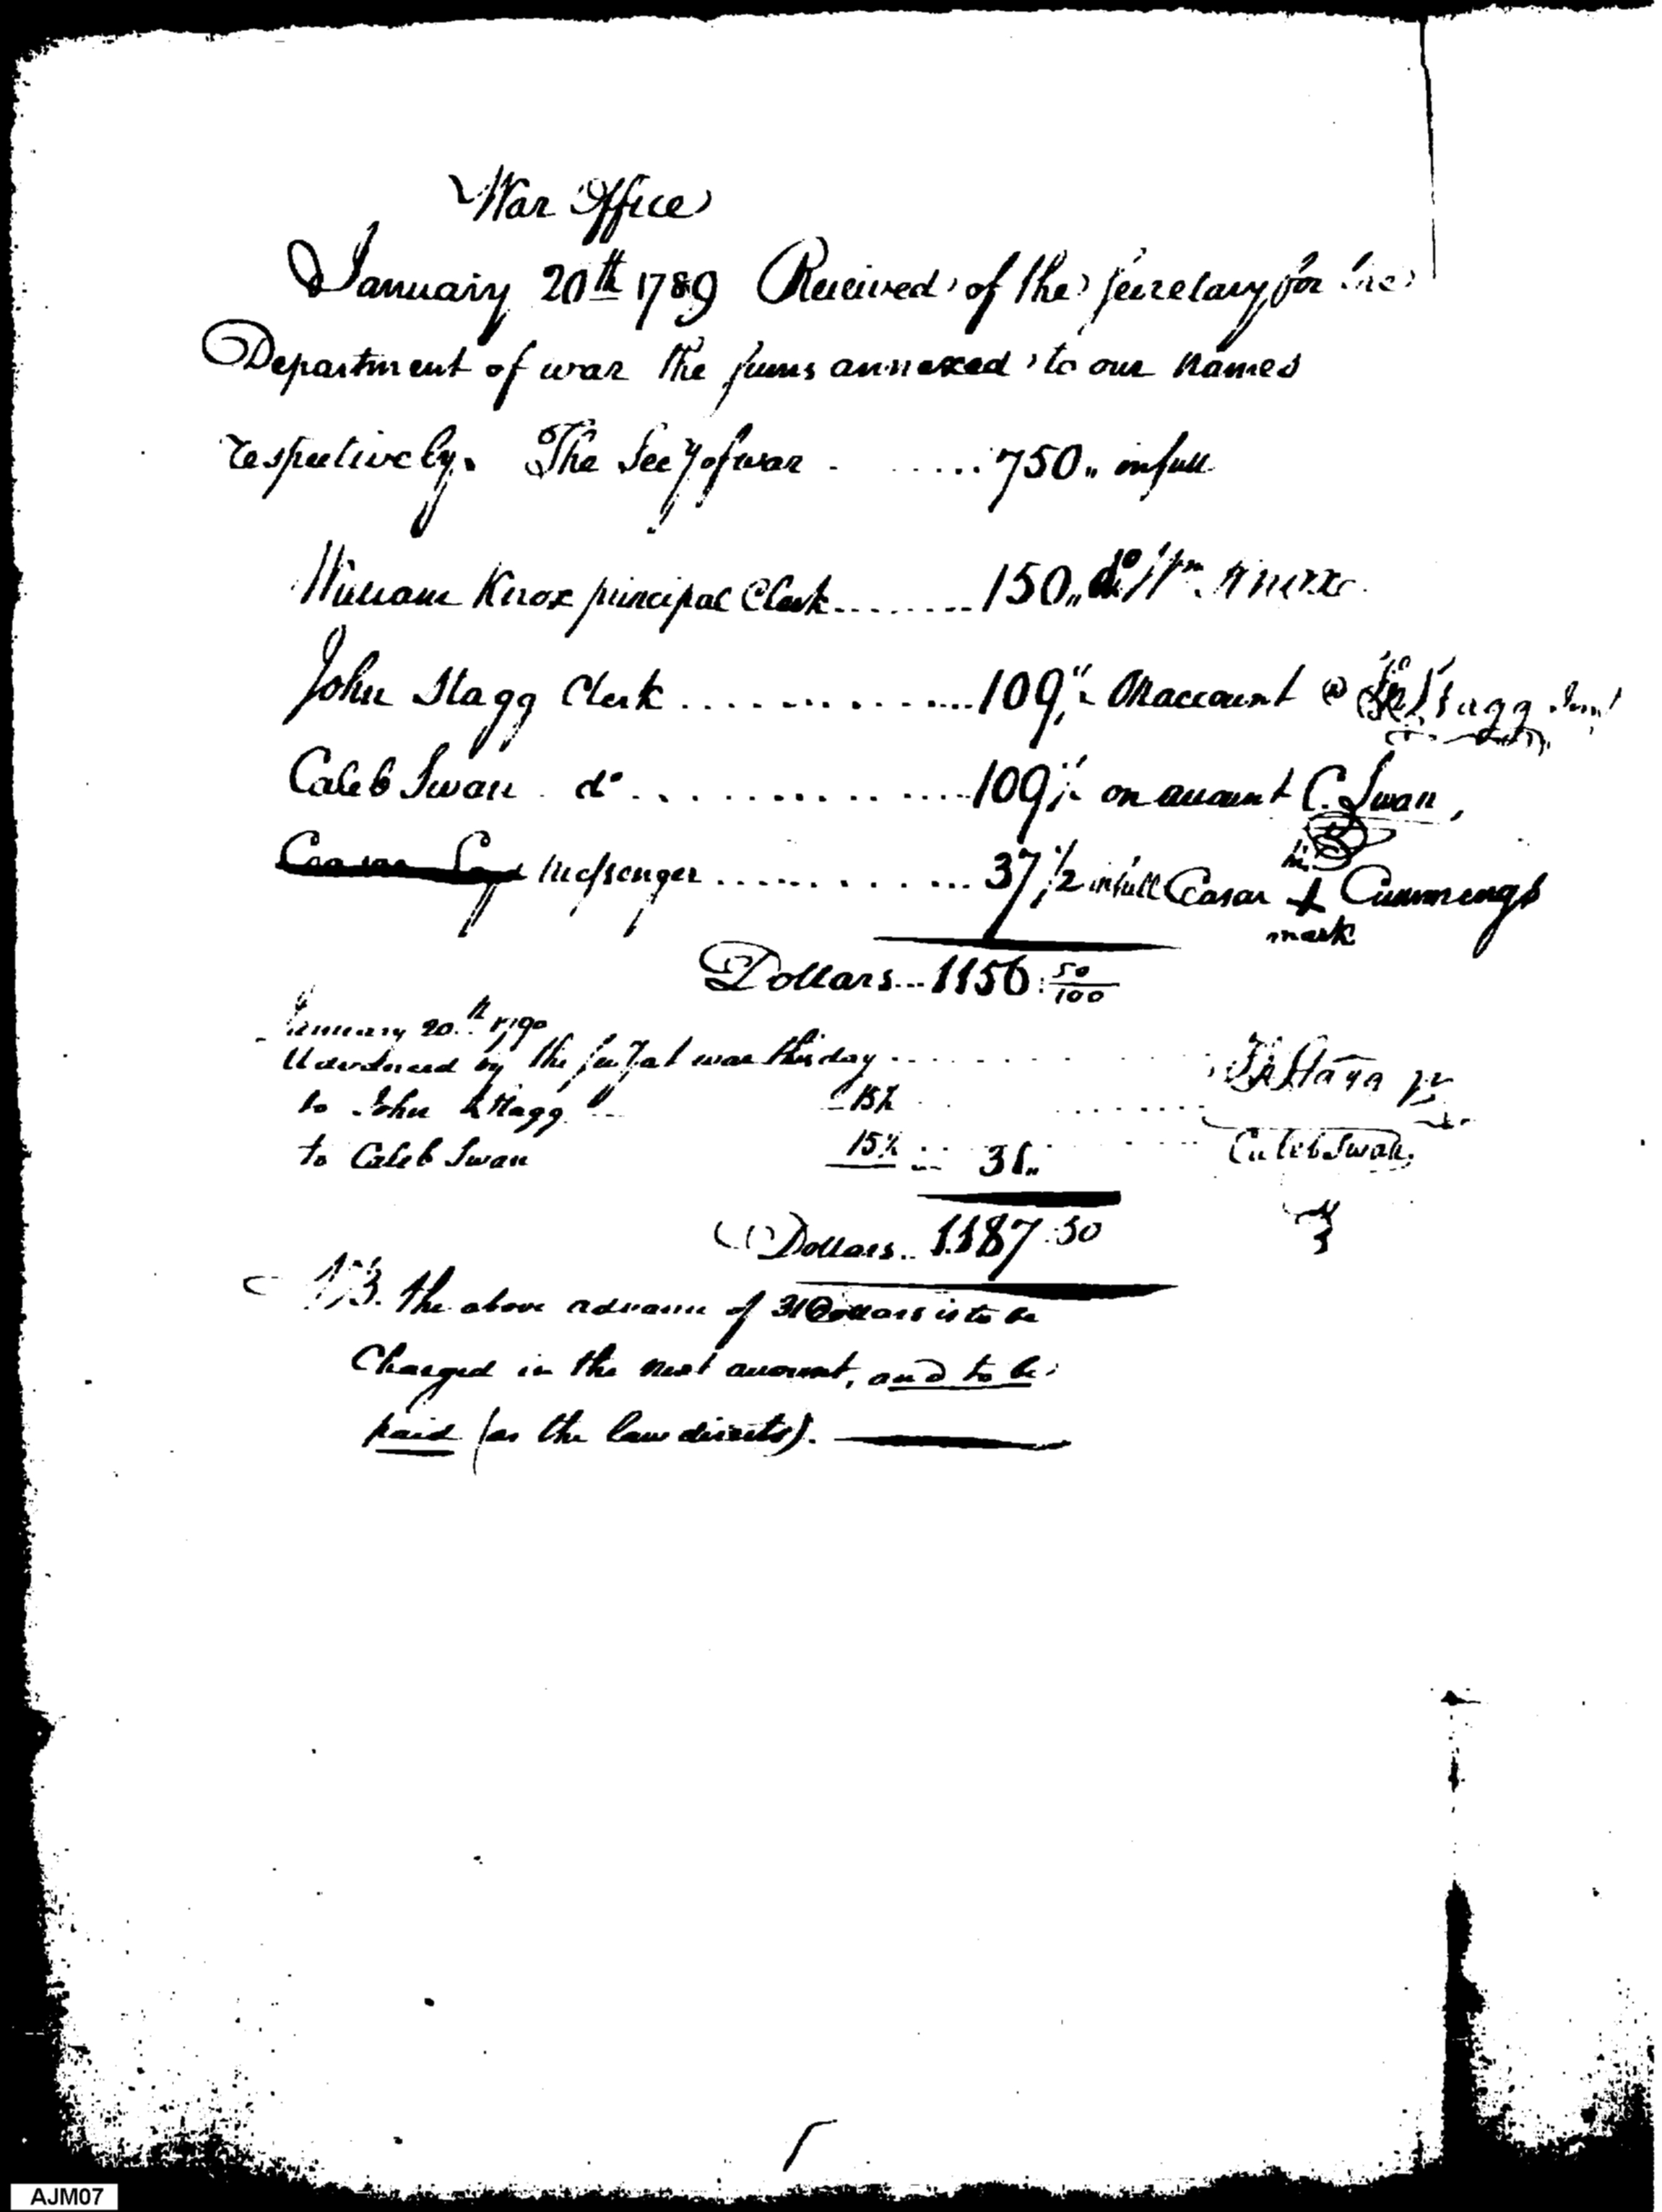 War Office
January 20th 1789 Received of the Secretary for the
Department of war the sums annexed to our names
respectively. The Secy of war ...... 750,, in full
William Knox principal Clerk ........ 150,, do Wm Knox
John Stagg Clerk .............. 109 on account Jno Stagg Junr
Caleb Swan do .............. 109 on account C. Swan,
Messenger .............. 37 1/2 in full Ceasar his + mark Cummings
Dollars... 1156. 50/100
January 20th 1790
Advanced by the Secy at war this day
to John Stagg 15½ Jn Stagg Jr
to Caleb Swan 15½ 31,, Caleb Swan.
Dollars.. 1187.50
NB. the above advance of 31 Dollars is to be
Charged in the next account, and to be
paid (as the law directs).
AJM07